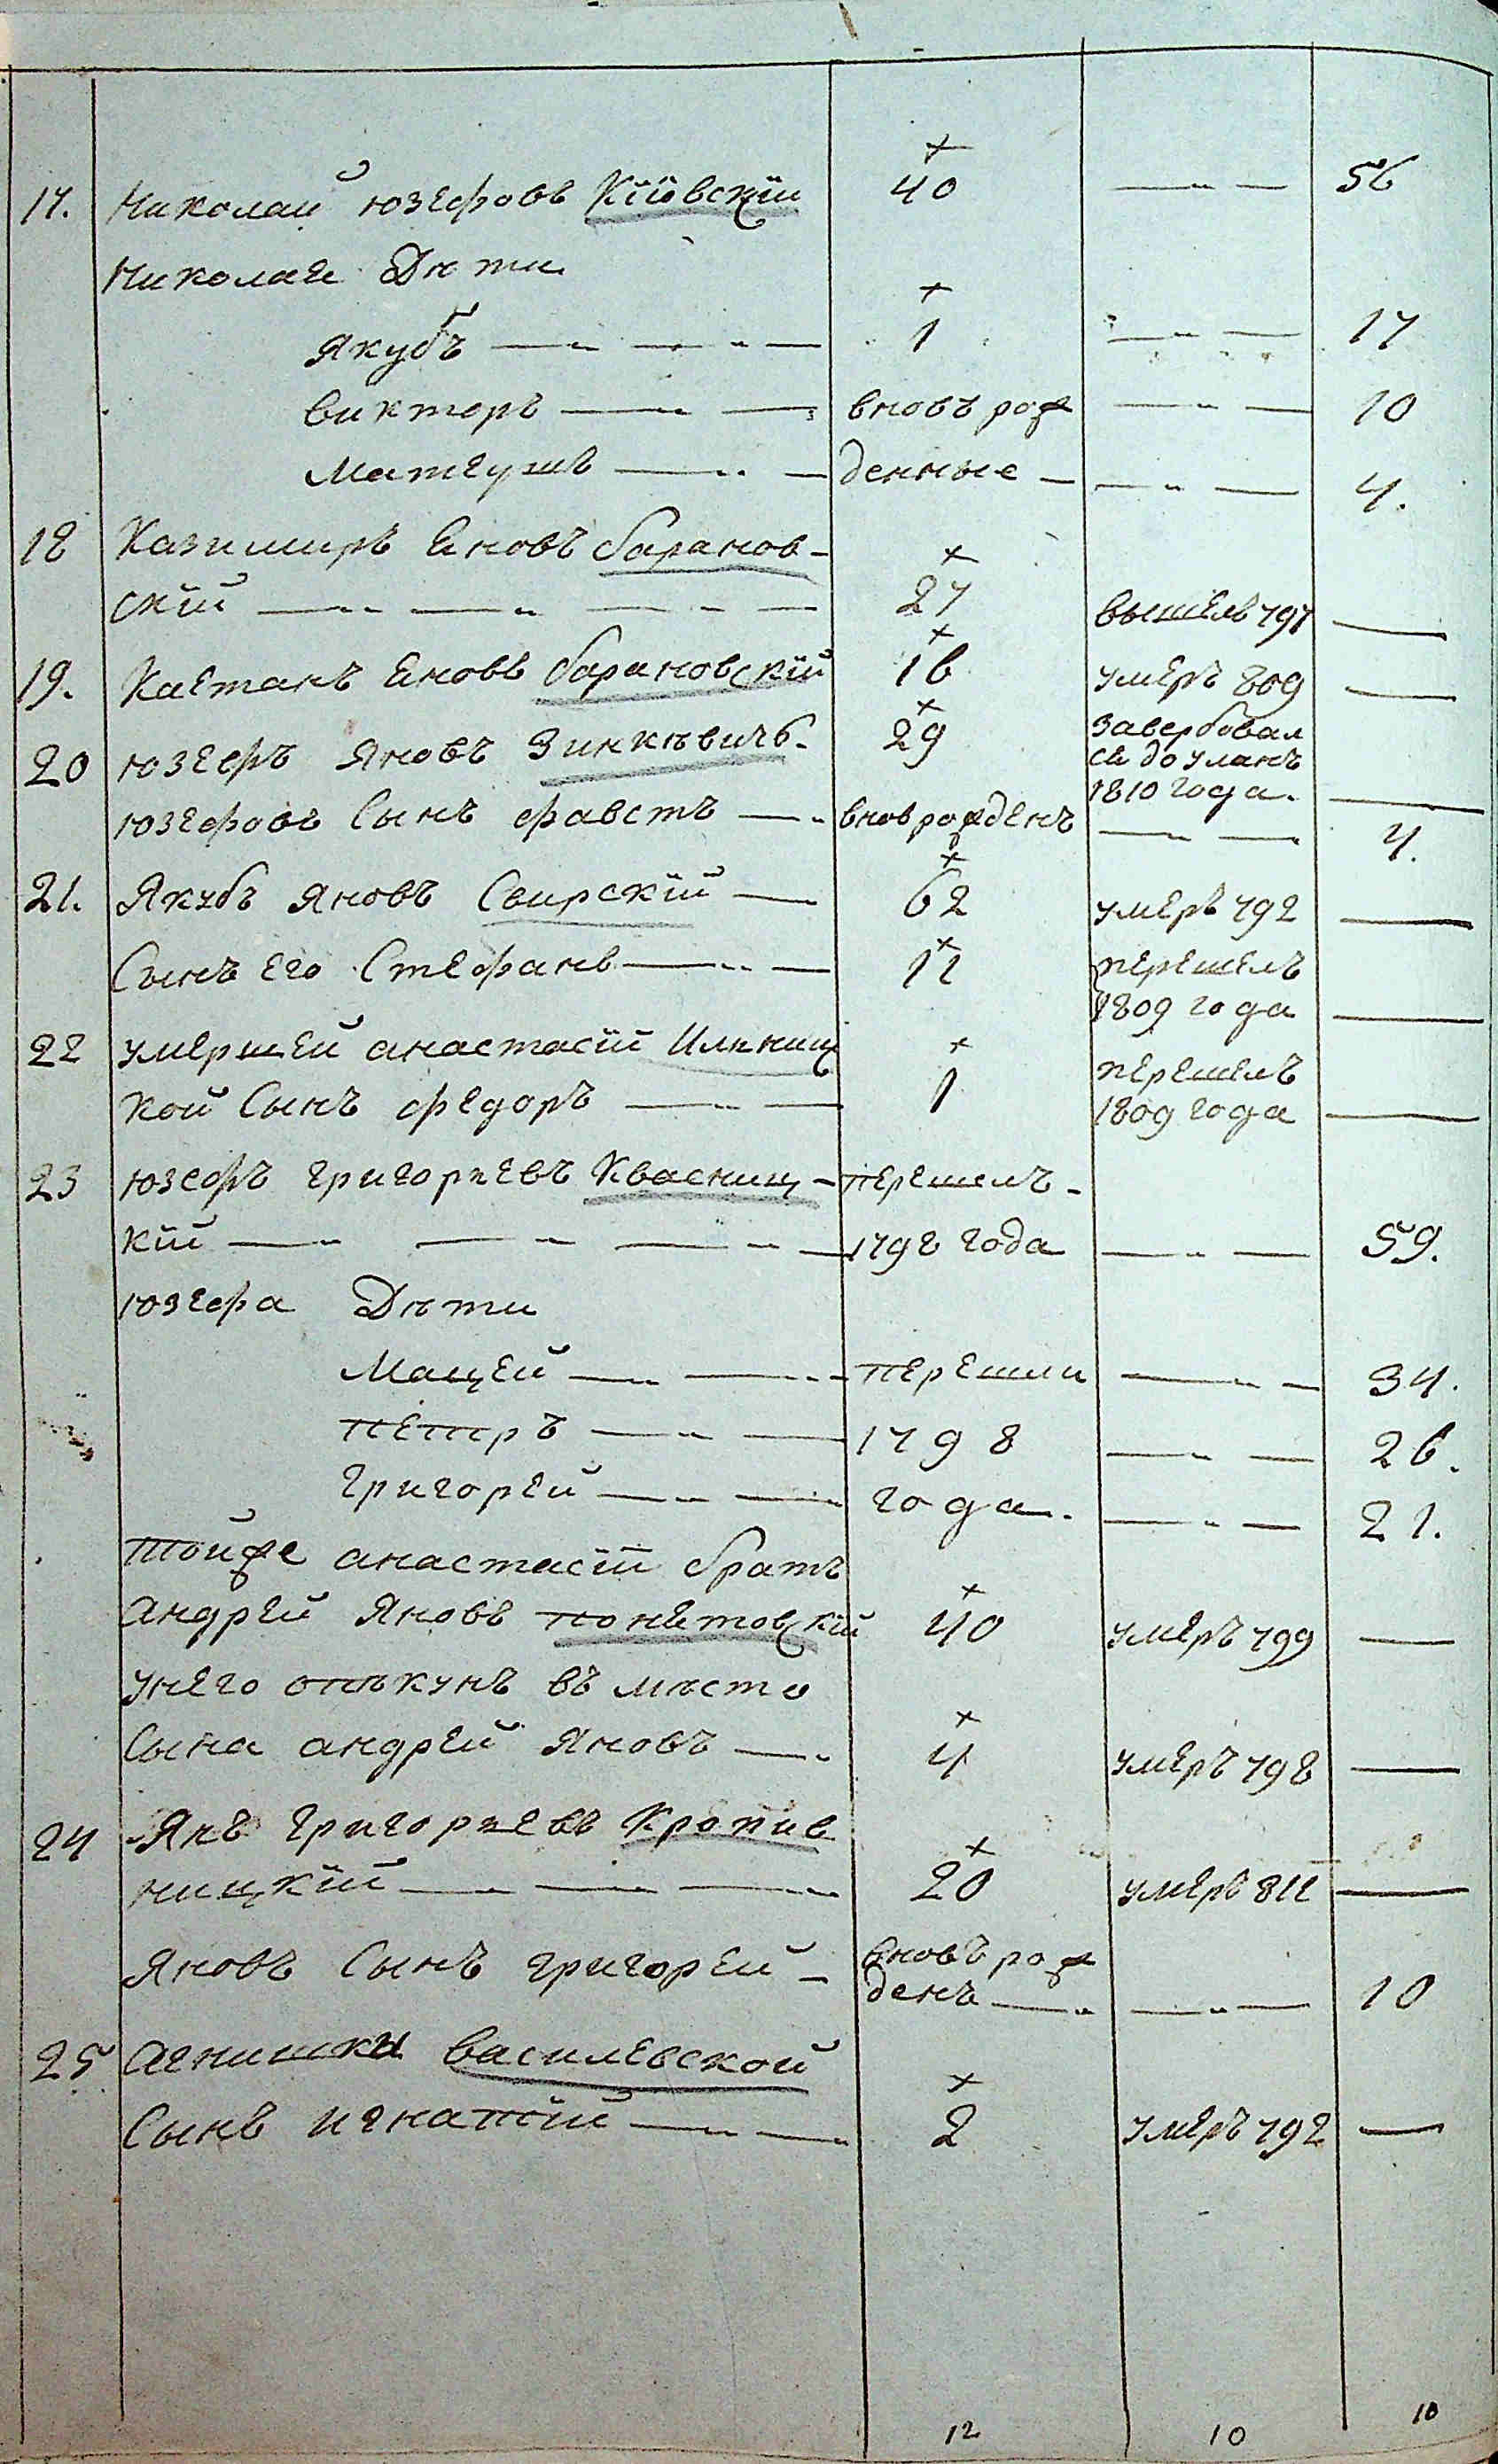 17. Николай Юзефовъ Кіювскій 40 — „ — 56
Николая Дѣти
Якубъ — „ — „ — 1 — „ — 17
Викторъ — „ — вновь рож — „ — 10
Матеушъ — „ — денные — — „ — 4.
18 Казимиръ Яновъ Баранов-
скій — „ — „ — „ — 27 вышелъ 797 —
19. Каетанъ Яновъ Барановскій 16 умеръ 809 —
20 Юзефъ Яновъ Зинкѣвичъ. 29 завербовал
ся до уланъ
1810 года. —
Юзефовъ Сынъ Фавстъ — „ внов рожденъ — „ — 4.
21. Якубъ Яновъ Свирскій — 62 умеръ 792 —
Сынъ Его Стефанъ — „ — 12 перешелъ
1809 года —
22 умершей анастасіи Илниц 1 перешелъ
кой Сынъ Федоръ — „ — 1809 года —
23 Юзефъ Григорьевъ Квасниц- перешелъ -
кій — „ — „ — „ — 1798 года — „ — 59.
Юзефа Дѣти
Мацей — „ — „ - перешли — „ — 34.
Петръ — „ — 1798 — „ — 26.
Григорей — „ — года. — „ — 21.
тойже анастасіи братъ
андрей Яновъ понятовскій 40 умеръ 799 —
унего опѣкунъ въ мѣсто
Сына андрей Яновъ — „ 4 умеръ 798 —
24 Янъ Григорьевъ Кропив
ницкій — „ — „ — „ 20 умеръ 812 —
Яновъ Сынъ Григорей — вновъ рож
денъ — „ — „ — 10
25 Агнишки Василевской
Сынъ Игнатій — „ — „ 2 умеръ 792 —
12 10 10